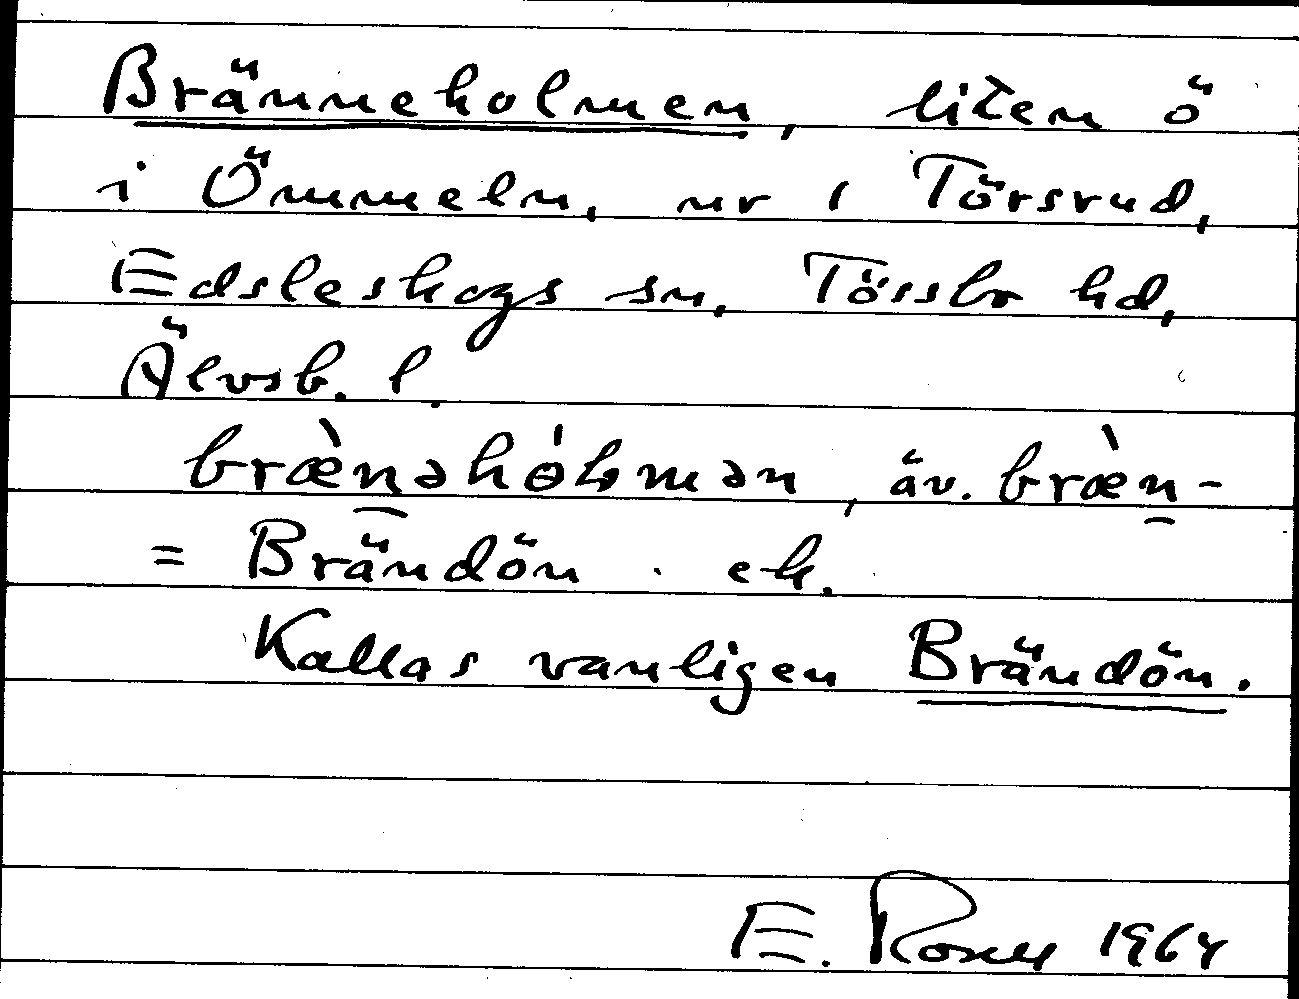 Bränneholmen, liten ö
i Ömmeln, nr 1 Törsrud,
Edsleskogs sn, Tössbo hd,
Älvsb. l.
bræ̀nəhólmən, äv. bræ̀n-
= Brändön ek.
Kallas vanligen Brändön.
E. 1964